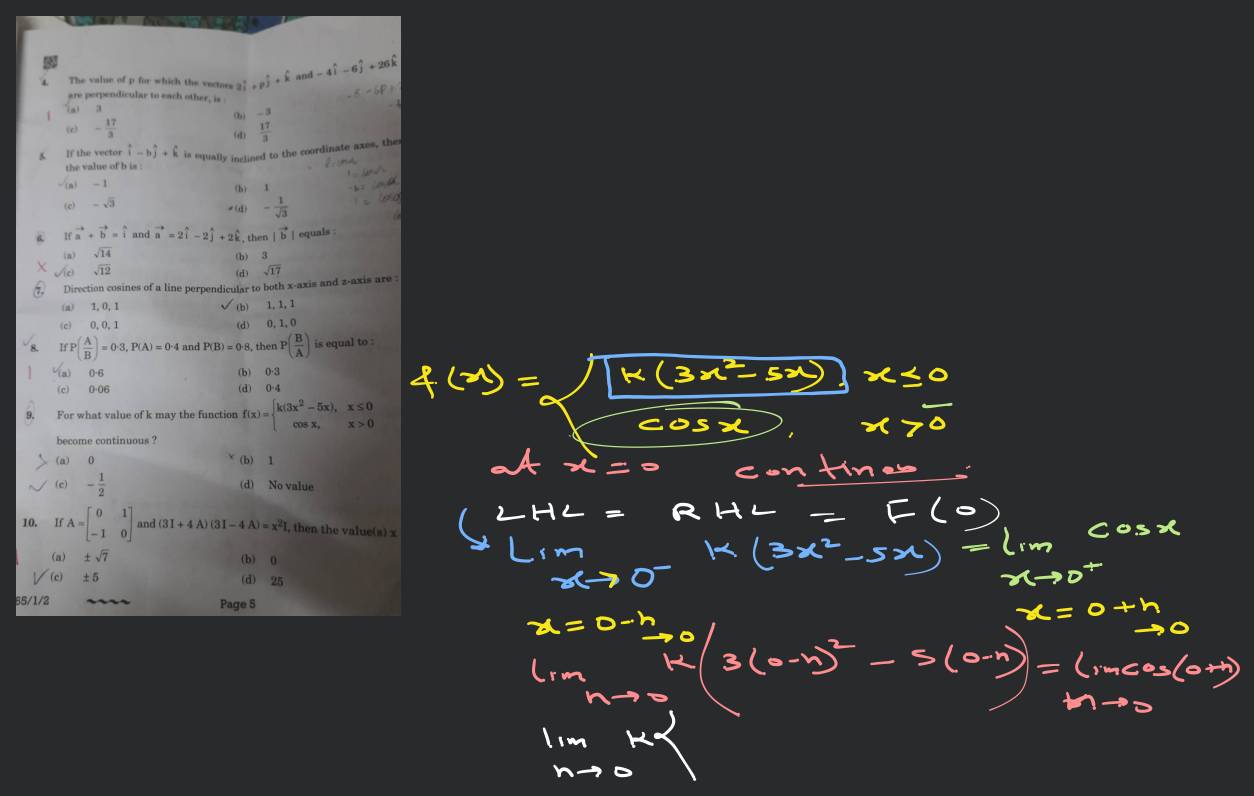 4. The value of p for which the vectors 2î + pĵ + k̂ and – 4î – 6ĵ + 26k̂
are perpendicular to each other, is :
(a) 3 (b) – 3
(c) – 17/3 (d) 17/3
5. If the vector î – bĵ + k̂ is equally inclined to the coordinate axes, then
the value of b is :
(a) – 1 (b) 1
(c) – √3 (d) – 1/√3
6. If a⃗ + b⃗ = î and a⃗ = 2î – 2ĵ + 2k̂, then | b⃗ | equals :
(a) √14 (b) 3
(c) √12 (d) √17
7. Direction cosines of a line perpendicular to both x-axis and z-axis are :
(a) 1, 0, 1 (b) 1, 1, 1
(c) 0, 0, 1 (d) 0, 1, 0
8. If P(A/B) = 0·3, P(A) = 0·4 and P(B) = 0·8, then P(B/A) is equal to :
(a) 0·6 (b) 0·3
(c) 0·06 (d) 0·4
9. For what value of k may the function f(x) = { k(3x² – 5x), x ≤ 0
cos x, x > 0
become continuous ?
(a) 0 (b) 1
(c) – 1/2 (d) No value
10. If A = [0 1
–1 0] and (3I + 4 A) (3I – 4 A) = x²I, then the value(s) x
(a) ± √7 (b) 0
(c) ± 5 (d) 25
65/1/2 Page 5
f(x) = { K(3x² – 5x), x ≤ 0
cosx, x > 0
at x = 0 continuo
LHL = RHL = F(0)
Lim x→0⁻ K(3x² – 5x) = Lim x→0⁺ cosx
x = 0 – h →0 x = 0 + h →0
Lim h→0 K(3(0–h)² – 5(0–h)) = Lim cos(0+h) h→0
lim h→0 K(